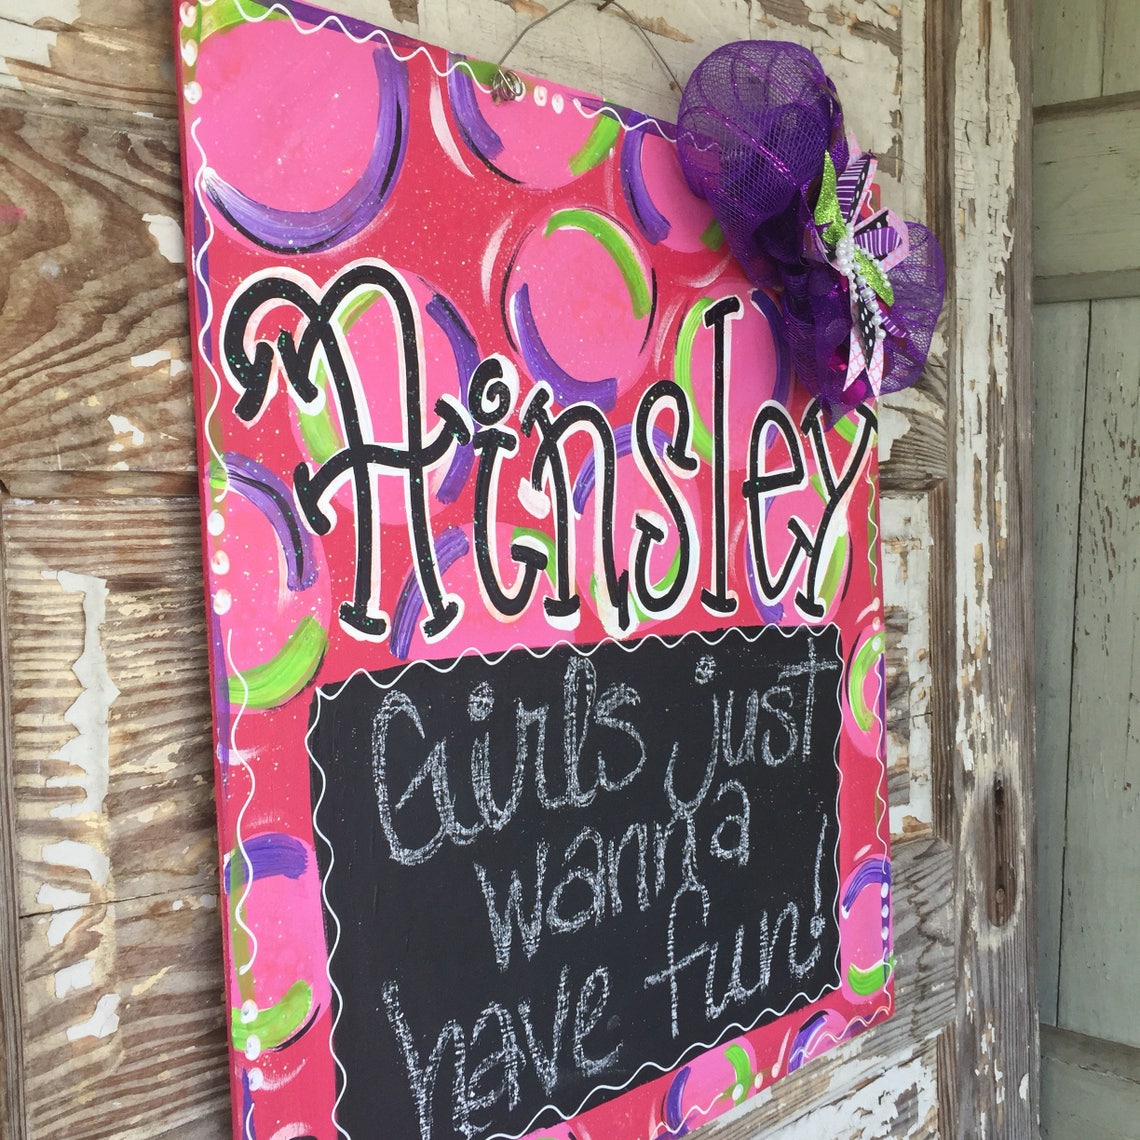 Ainsley
Girls just
wanna
have fun!